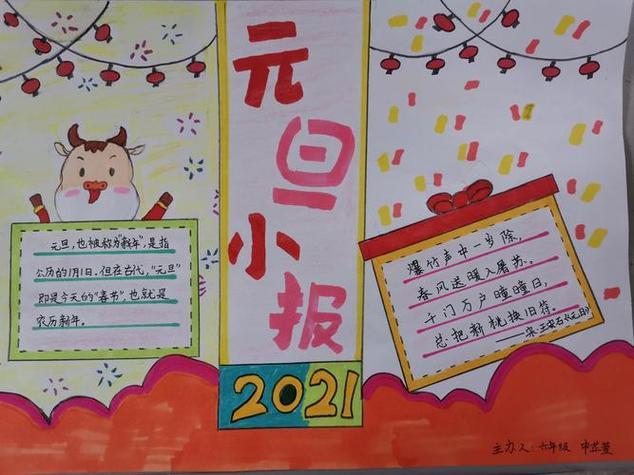 元旦小报
2021
元旦,也被称为“新年”,是指
公历的1月1日.但在古代,“元旦”
即是今天的“春节”,也就是
农历新年。
爆竹声中一岁除,
春风送暖入屠苏。
千门万户曈曈日,
总把新桃换旧符。
——宋·王安石《元日》
主办人:六年级